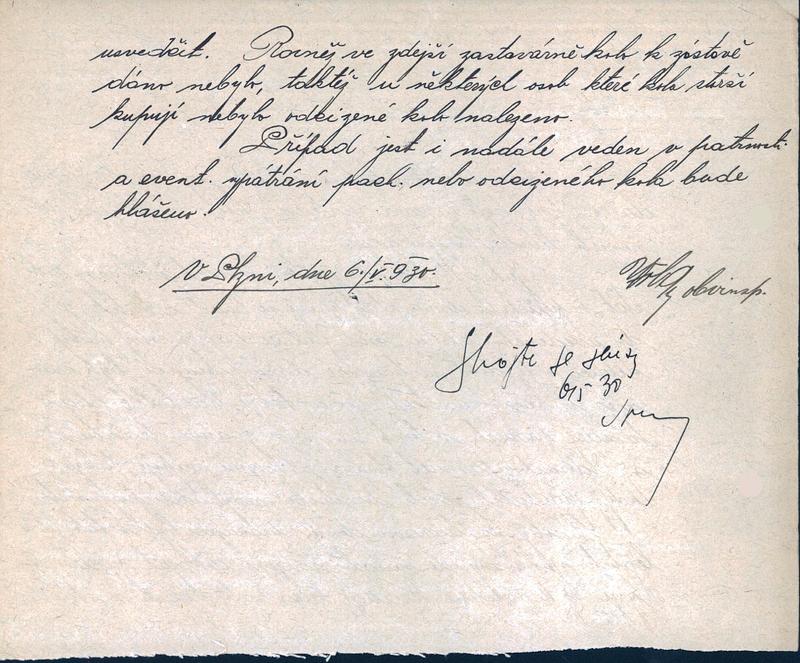 usvědčit. Rovněž ve zdejší zastavárně kolo k zástavě
dáno nebylo, taktéž u některých osob které kola starší
kupují nebylo odcizené kolo nalezeno.
Případ jest i nadále veden v patrnosti
a event. vypátrání pach. nebo odcizeného kola bude
hlášeno.
V Plzni, dne 6./V. 930.
obvinsp.
se
6/5 30